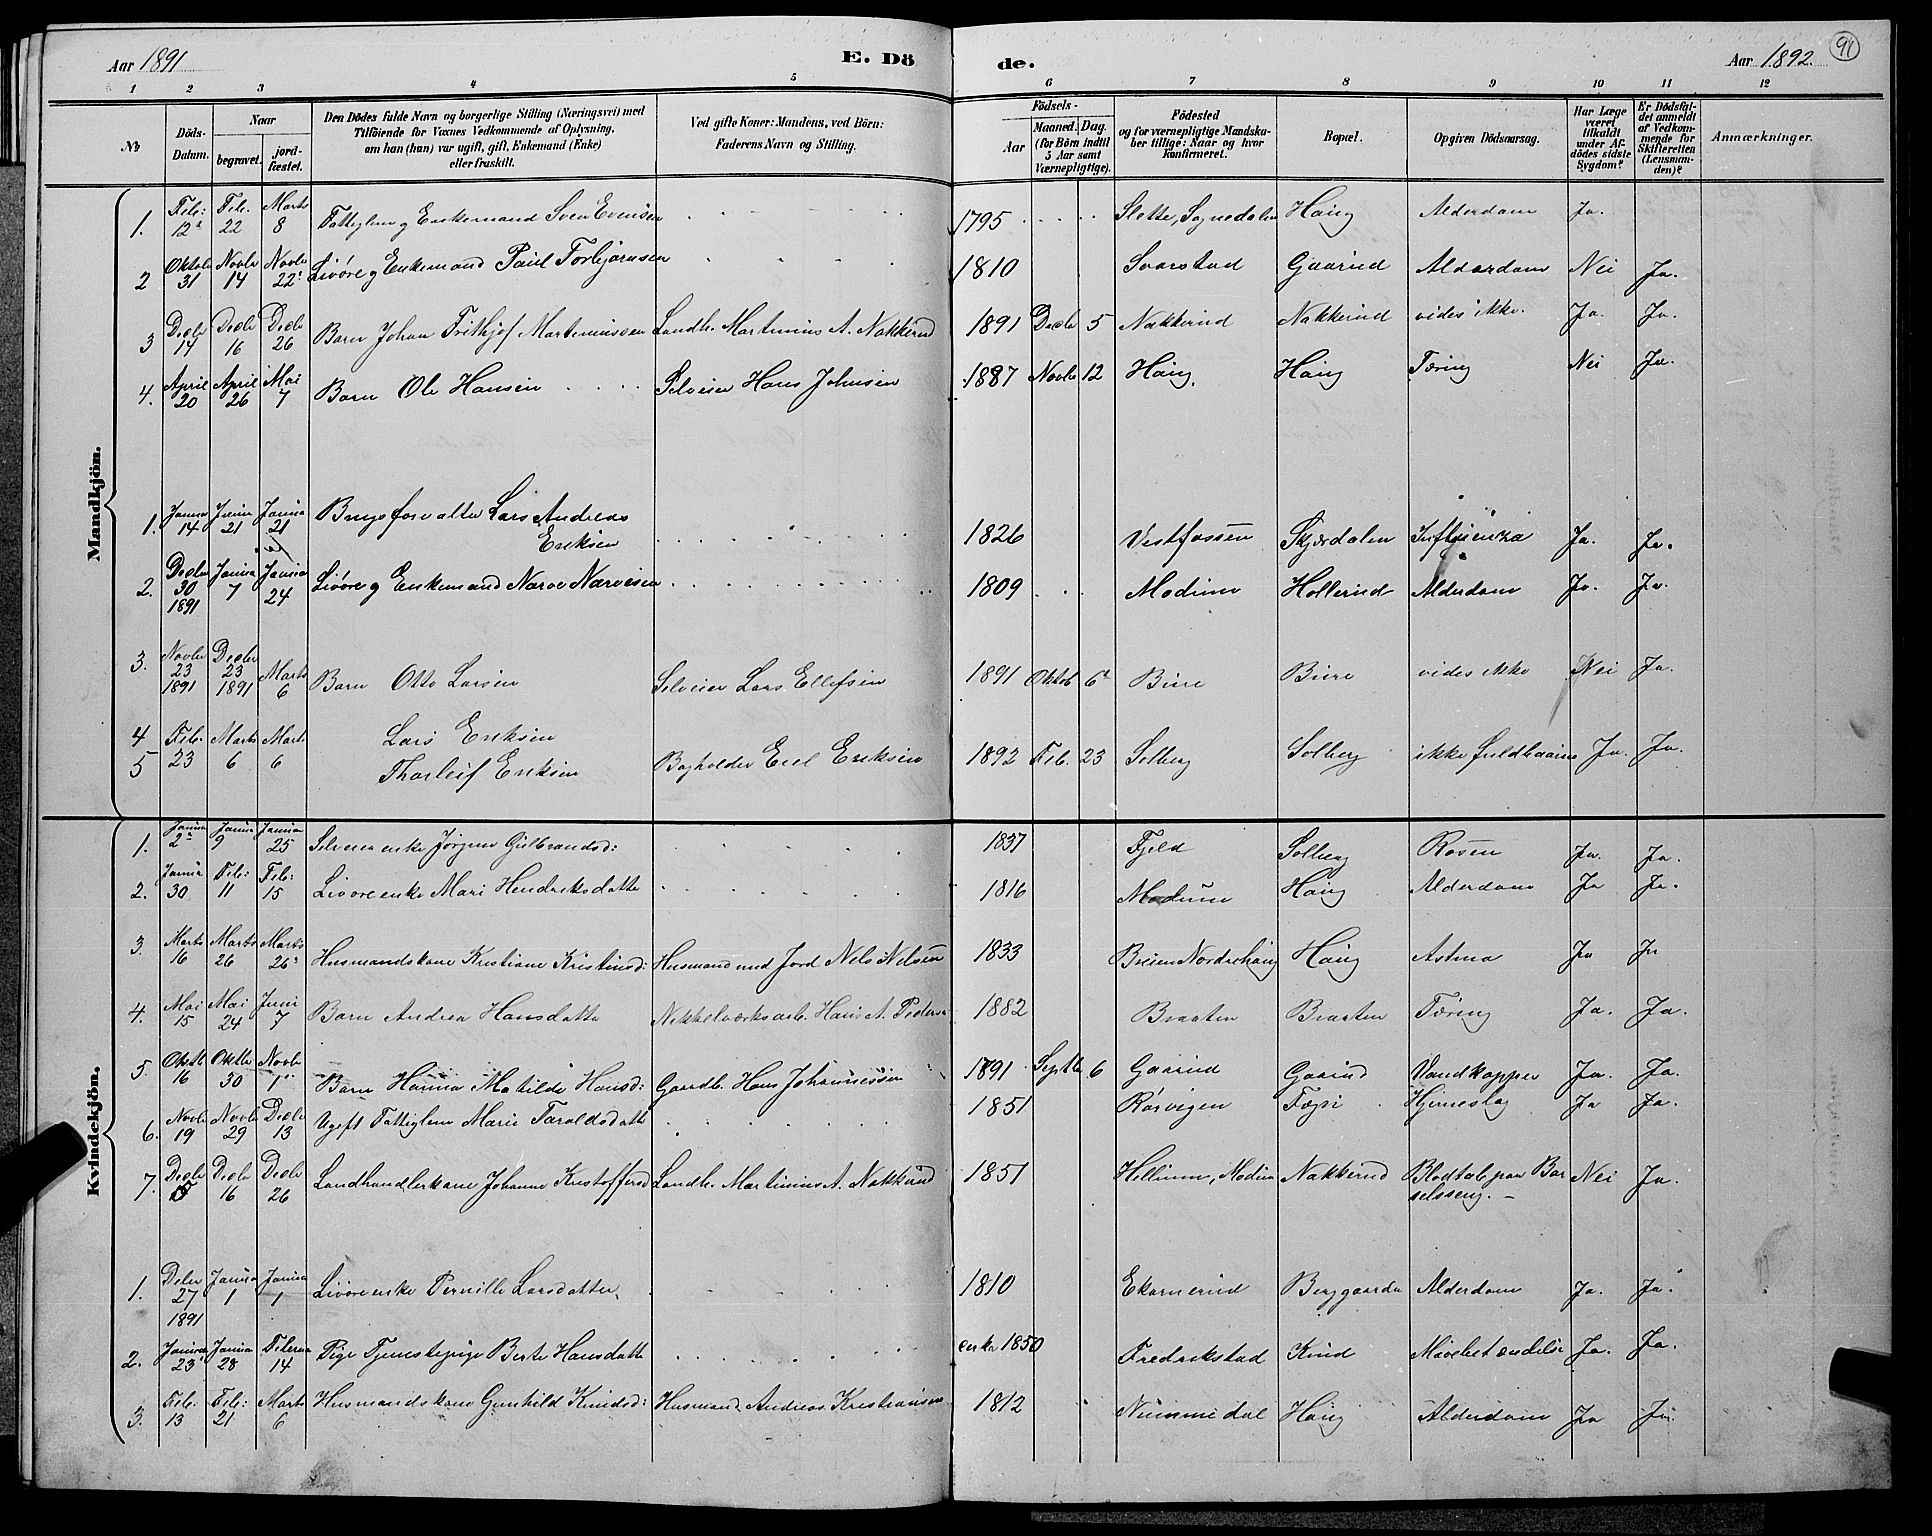 Aar 1891 E. Dö de. Aar 1892. 91
1 2 3 4 5 6 7 8 9 10 11 12
№
Döds-Datum.
Naar
begravet.
jordfæstet.
Den Dödes fulde Navn og borgerlige Stilling (Næringsvei) med
Tilföiende for Voxnes Vedkommende af Oplysning,
om han (hun) var ugift, gift, Enkemand (Enke)
eller fraskilt.
Ved gifte Koner: Mandens, ved Börn:
Faderens Navn og Stilling.
Födsels-
Aar
Maaned. Dag.
(for Börn indtil
5 Aar samt
Værnepligtige).
Födested
og for værnepligtige Mandskaber tillige: Naar og hvor
Konfirmeret.
Bopæl.
Opgiven Dödsaarsag.
Har Læge
været
tilkaldt
under Afdödes sidste
Sygdom?
Er Dödsfaldet anmeldt
af Vedkommende for
Skifteretten
(Lensmanden)?
Anmærkninger.
Mandkjön.
1. Feb: 12 Feb. 22 Marts 8 Fattiglem g Enkemand Sven Evensen 1795 Slette, Sognedalen Haug Alderdom Ja.
2 Oktobr 31 Novbr 14 Novbr 22 Livöre g Enkemand Paul Torbjørnsen 1810 Svarstad Gaarud Alderdom Nei Ja.
3 Decbr 14 Decbr 16 Decbr 26 Barn Johan Frithjof Martinussen Landh. Martinius A. Nakkerud 1891 Decbr 5 Nakkerud Nakkerud vides ikke. Ja. Ja.
4. April 20 April 26 Mai 7 Barn Ole Hansen Selveier Hans Johnsen 1887 Novbr 12 Haug. Haug Tæring Nei Ja.
1. Janua 14 Janua 21 Janua 21 Brugsforvalter Lars Andreas
Eriksen 1826 Vestfossen Skjærdalen Influenza Ja. Ja.
2. Decbr 30 1891 Janua 7 Janua 24 Livöre g Enkemand Narve Narvesen 1809 Modum Hollerud Alderdom Ja. Ja.
3. Novbr 23 1891 Decbr 23 1891 Marts 6 Barn Otto Larsen Selveier Lars Ellefsen 1891 Oktob 6 Bure Bure vides ikke Nei Ja.
4 Lars Eriksen
5 Feb. 23 Marts 6 Marts 6 Thorleif Eriksen Bogholder Eriksen 1892 Feb. 23 Solberg Solberg ikke fuldbaarne Ja. Ja.
Kvindekjön.
1. Janua 2 Janua 9 Janua 25 Selveierenke Jørgine Gulbrandsd: 1837 Fjeld Solberg Rosen Ja. Ja.
2. Janua 30 Feb: 11 Feb: 15 Livöreenke Mari Hendriksdatte 1816 Modum Haug Alderdom Ja Ja.
3. Marts 16 Marts 26 Marts 26 Husmandskone Kristiane Kristiansd: Husmand med Jord Nels Nelsen 1833 Breien Norderhaug Haug Astma Ja Ja
4. Mai 15 Mai 24 Juni 7 Barn Andrea Hansdatte Nikkelværksarb. Hans A. Peders 1882 Braaten Braaten Tæring Ja. Ja.
5. Oktb 16 Oktbr 30 Novbr 1 Barn Hanna Matilde Hansd: Gaardb. Hans Johannessen 1891 Septbr 6 Gaarud Gaarud Vandkopper Ja. Ja.
6. Novbr 19 Novbr 29 Decbr 13 Ugift Fattiglem Marie Taraldsdatte 1851 Rørvigen Hjerneslag Ja Ja.
7. Decbr Decbr 16 Decbr 26 Landhandlerkone Johanne Kristoffersd Landh. Martinius A. Nakkerud 1851 Hellerud, Modum Nakkerud Blodtab paa Bar
selsseng. Nei Ja.
1. Decbr 27 1891 Janua 1 Janua 1 Livöreenke Pernille Larsdatter 1810 Ekornerud Berggaarde Alderdom Ja. Ja.
2. Janua 23 Janua 28 Februa 14 Pige Tjenestepige Berte Hansdatte cirka 1850 Fredrikstad Knud Mavebetændelse Ja. Ja.
3. Feb. 13 Feb: 21 Marts 6 Husmandskone Gunhild Knudsd: Husmand Andreas Kristiansen 1812 Nummedal Haug Alderdom Ja Ja.